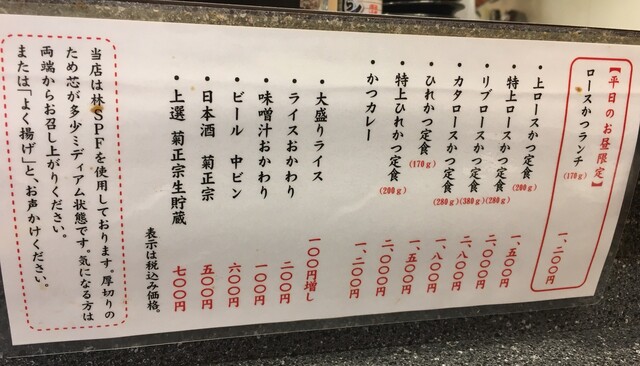 【平日のお昼限定】
ロースかつランチ(170g) 一、二〇〇円
・上ロースかつ定食(200g) 一、五〇〇円
・特上ロースかつ定食(280g) 二、〇〇〇円
・リブロースかつ定食(380g) 二、八〇〇円
・カタロースかつ定食(280g) 一、八〇〇円
・ひれかつ定食(170g) 一、五〇〇円
・特上ひれかつ定食(200g) 二、〇〇〇円
・かつカレー 一、二〇〇円
・大盛りライス 一〇〇円増し
・ライスおかわり 二〇〇円
・味噌汁おかわり 一〇〇円
・ビール 中ビン 六〇〇円
・日本酒 菊正宗 五〇〇円
・上選 菊正宗生貯蔵 七〇〇円
表示は税込み価格。
当店は林SPFを使用しております。厚切りの
ため芯が多少ミディアム状態です。気になる方は
両端からお召し上がりください。
または「よく揚げ」と、お声かけください。